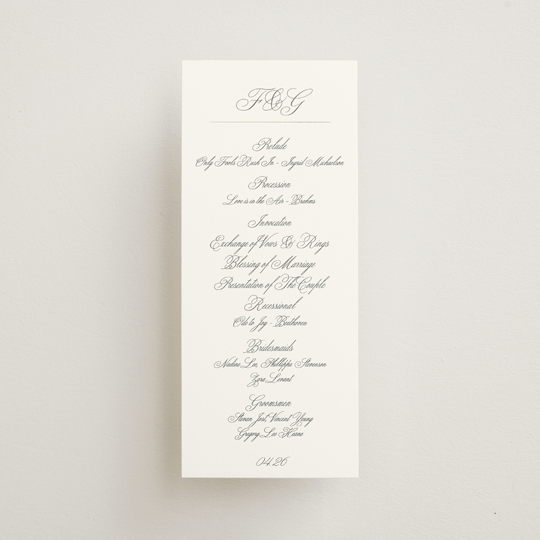 F&G
Prelude
Only Fools Rush In - Ingrid Michaelson
Procession
Love is in the Air - Brahms
Invocation
Exchange of Vows & Rings
Blessing of Marriage
Presentation of The Couple
Recessional
Ode to Joy - Beethoven
Bridesmaids
Nadine Lin, Phillippa Stevenson
Zara Lenant
Groomsmen
Steven Just, Vincent Young
Gregory Lee
04.26